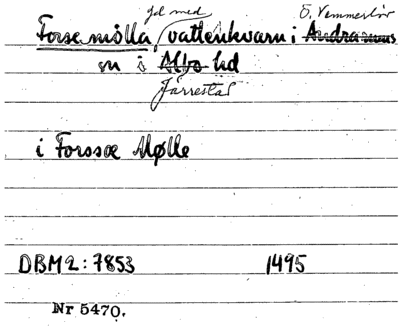 jd med Ö. Vemmerlöv
Forse mölla, vattenkvarn i Andrarums
sn i Albo hd
Järrestad
i Forssæ Mølle
DBM 2:7853 1495
Nr 5470.